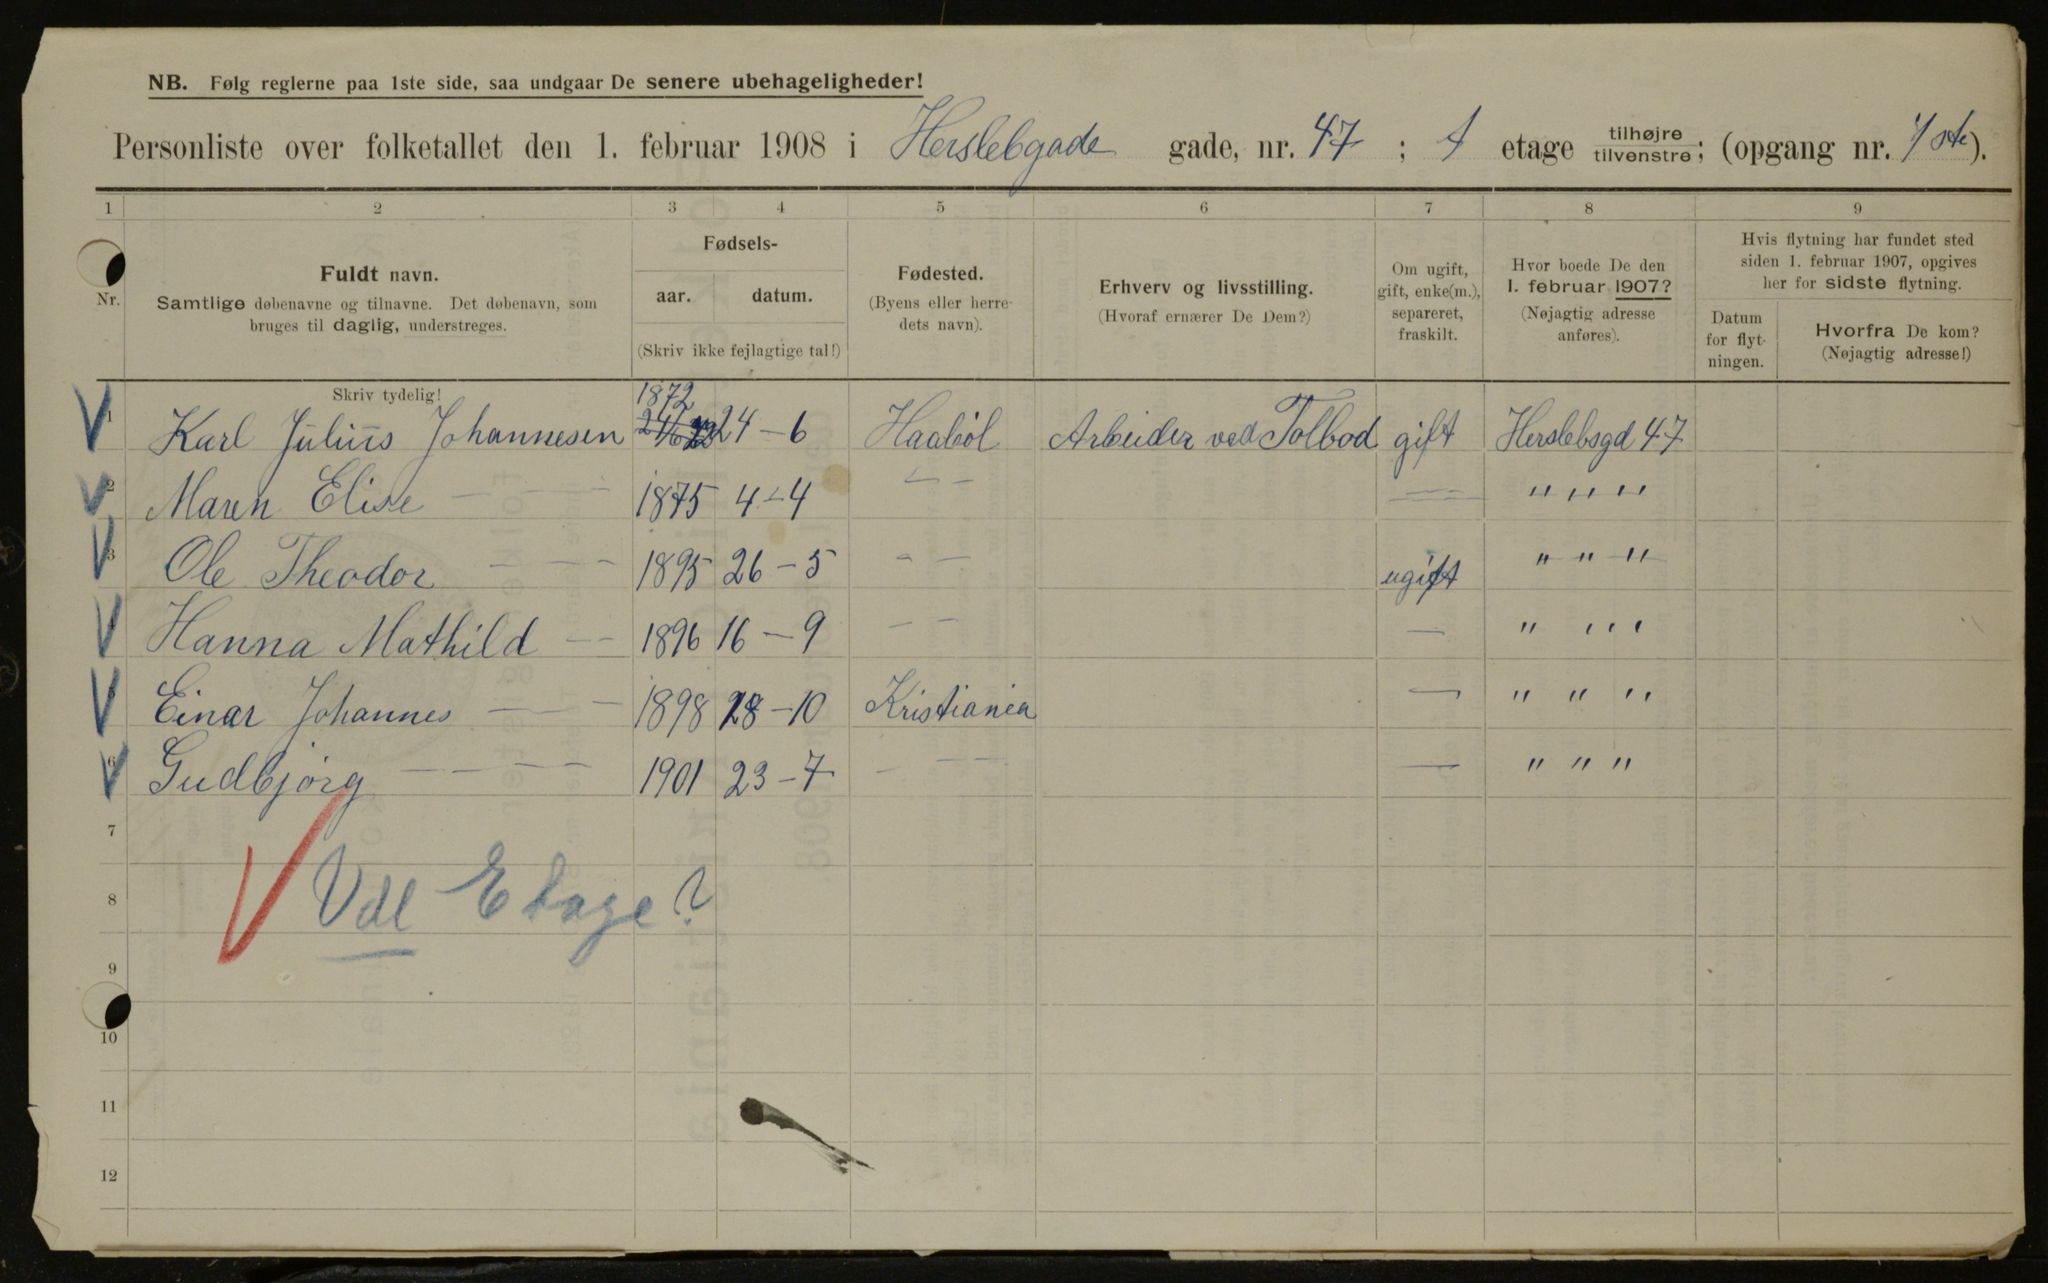 NB. Følg reglerne paa 1ste side, saa undgaar De senere ubehageligheder!
Personliste over folketallet den 1. februar 1908 i Herslebgade gade, nr. 47 ; 1 etage tilhøjre tilvenstre; (opgang nr. 1ste).
1 2 3 4 5 6 7 8 9
Nr.
Fuldt navn.
Samtlige døbenavne og tilnavne. Det døbenavn, som
bruges til daglig, understreges.
Fødsels-
aar. datum.
(Skriv ikke fejlagtige tal!)
Fødested.
(Byens eller herre-
dets navn).
Erhverv og livsstilling.
(Hvoraf ernærer De Dem?)
Om ugift,
gift, enke(m.),
separeret,
fraskilt.
Hvor boede De den
1. februar 1907?
(Nøjagtig adresse
anføres).
Hvis flytning har fundet sted
siden 1. februar 1907, opgives
her for sidste flytning.
Datum
for flyt-
ningen.
Hvorfra De kom?
(Nøjagtig adresse!)
Skriv tydelig!
1872
1 Karl Julius Johannesen 24-6 Haaböl Arbeider ved Tolbod gift Herslebsgd 47
2 Maren Elise — — 1875 4-4 — — — " " "
3 Ole Theodor — — — 1895 26-5 — — ugift " " "
Hanna Mathild — — 1896 16-9 — — — " " "
Einar Johannes — — — 1898 28-10 Kristiania — " " "
6 Gudbjörg — — — — 1901 23-7 — — — — " " "
7
8 Vdl Etage?
9
10
11
12